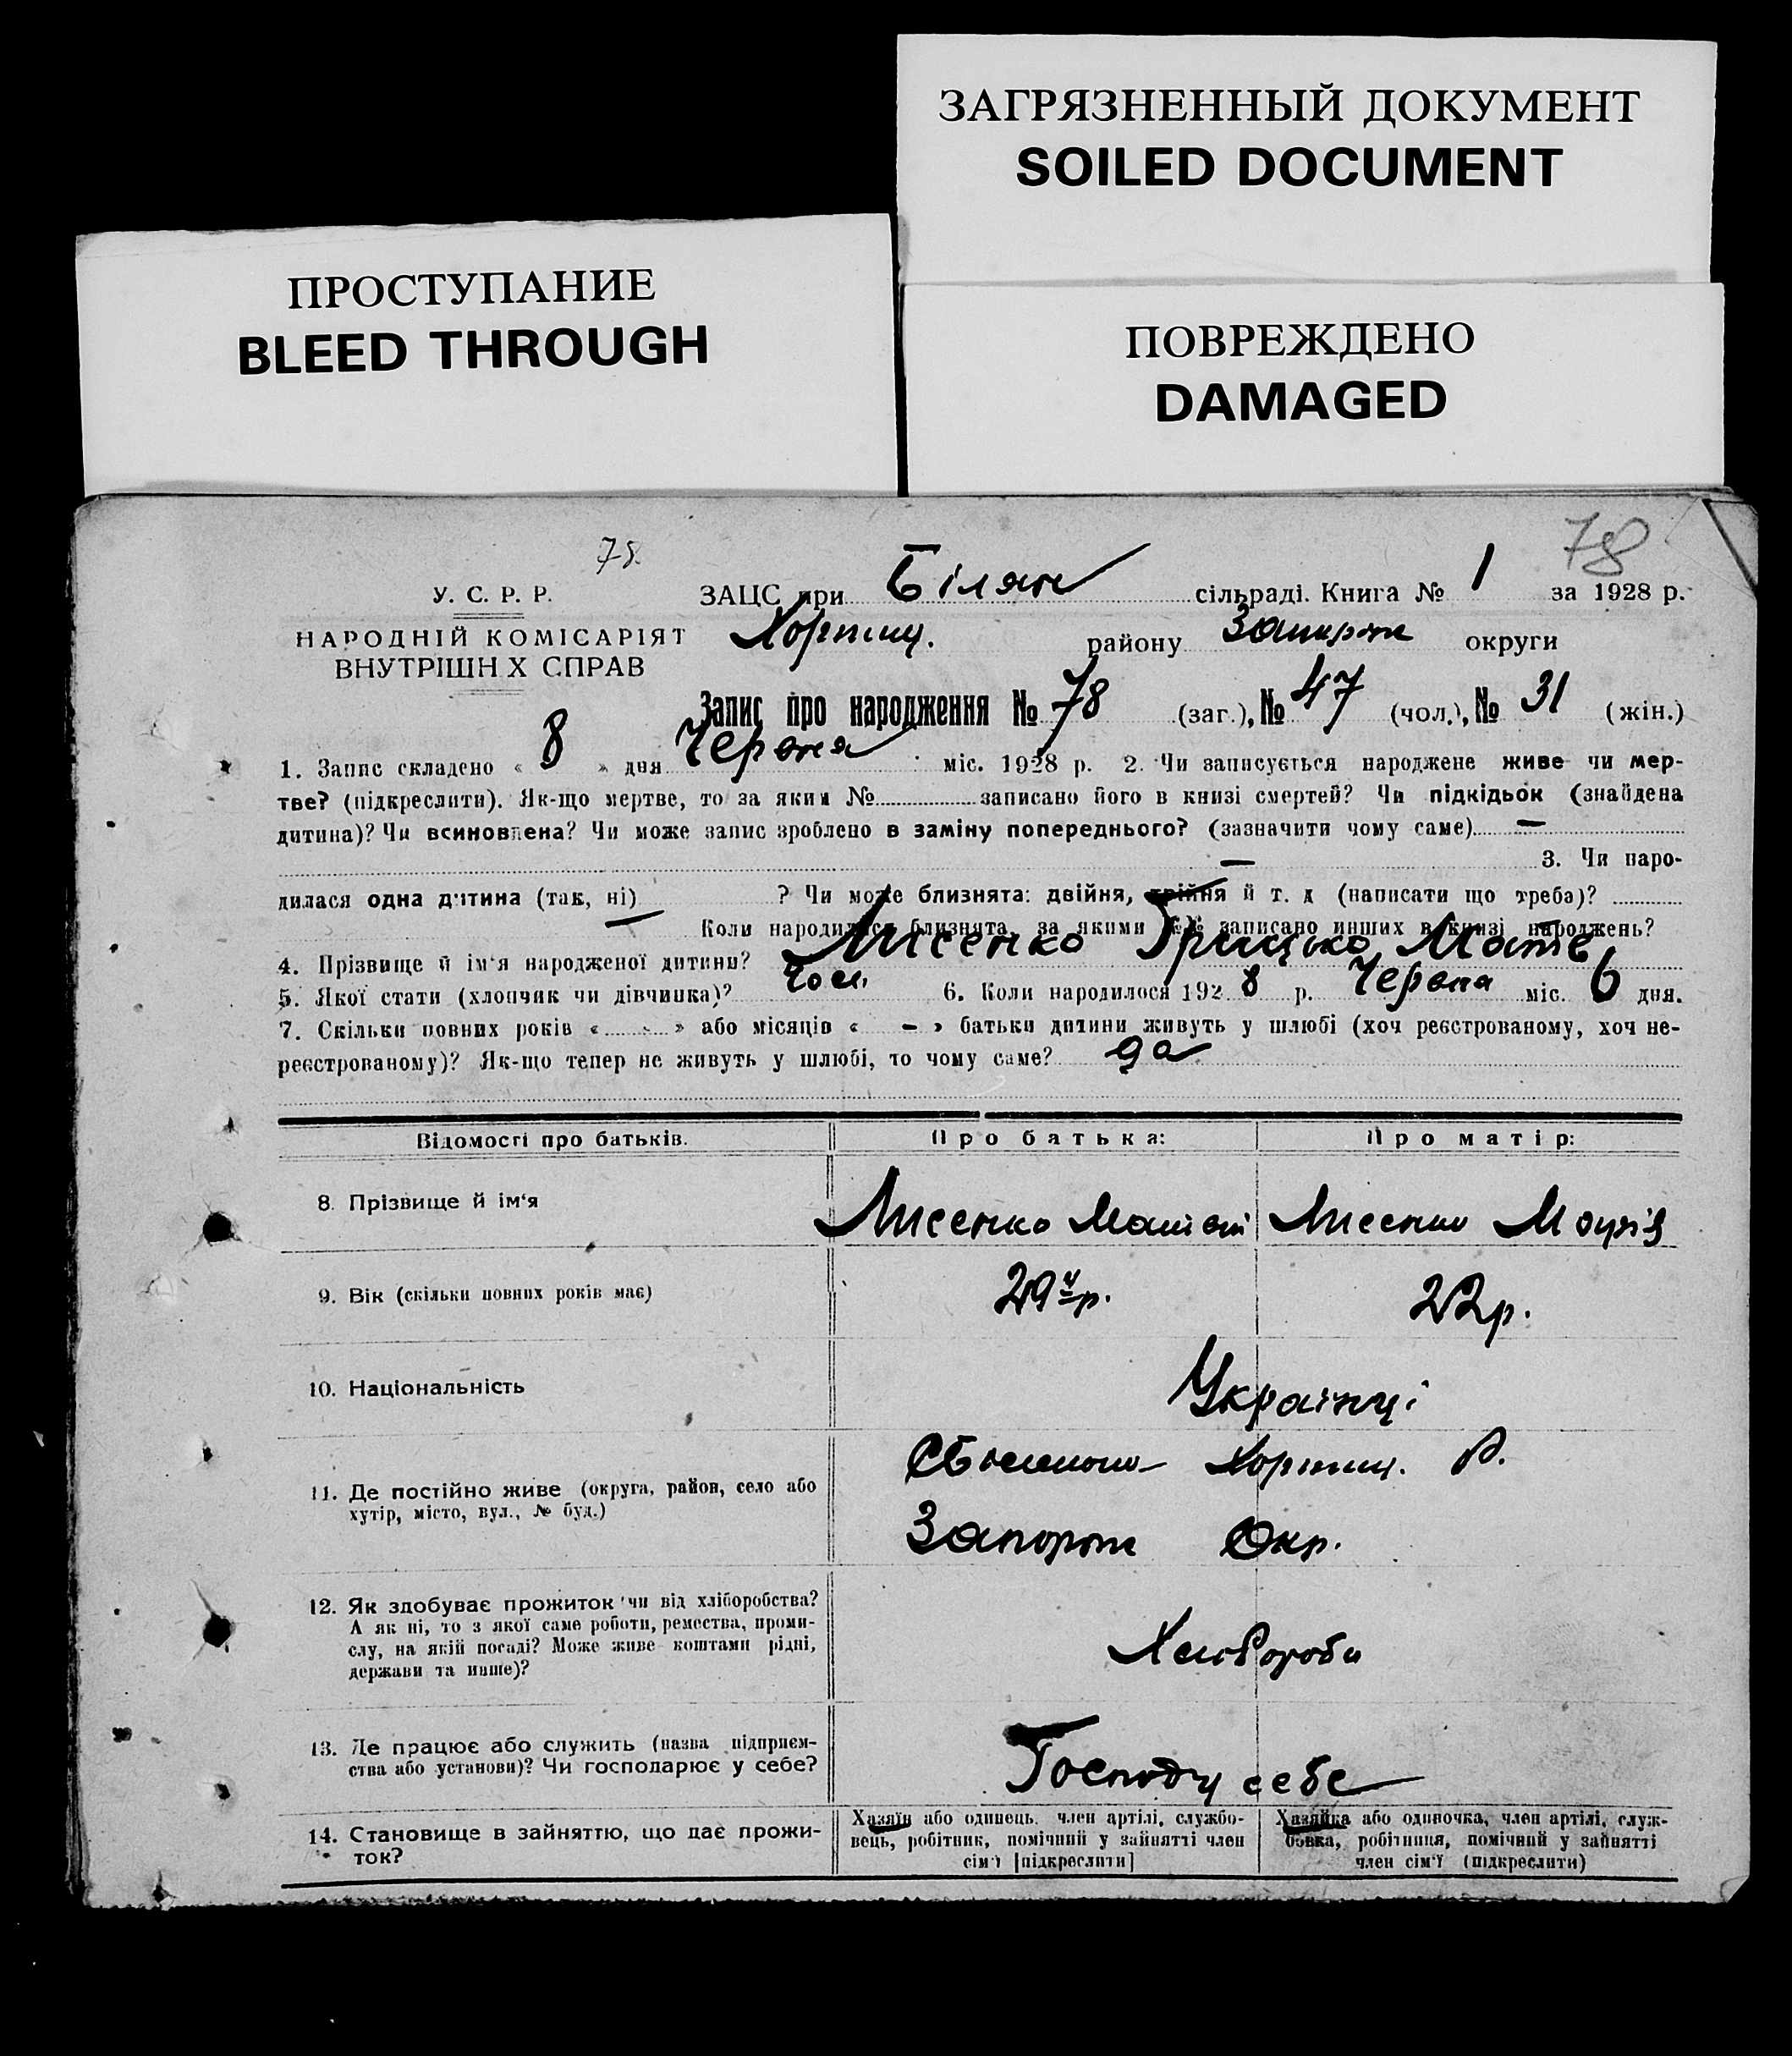 ЗАГРЯЗНЕННЫЙ ДОКУМЕНТ
SOILED DOCUMENT
ПРОСТУПАНИЕ
BLEED THROUGH
ПОВРЕЖДЕНО
DAMAGED
78
78.
У. С. Р. Р.
ЗАЦС при Білян сільраді. Книга № 1 за 1928 р.
НАРОДНІЙ КОМІСАРІЯТ
ВНУТРІШН Х СПРАВ
Хортиц. району Запорож округи
Запис про народження № 78 (заг.), № 47 (чол.), № 31 (жін.)
1. Запис складено « 8 » дня Червня міс. 1928 р. 2. Чи записується народжене живе чи мер-
тве? (підкреслити). Як-що мертве, то за яким № записано його в книзі смертей? Чи підкідьок (знайдена
дитина)? Чи всиновлена? Чи може запис зроблено в заміну попереднього? (зазначити чому саме) —
— 3. Чи наро-
дилася одна дитина (так, ні) ? Чи може близнята: двійня, трійня й т. д (написати що треба)?
Коли народилися близнята, за якими №№ записано инших в книзі народжень?
4. Прізвище й ім'я народженої дитини? Лисенко Грицько Матв
5. Якої стати (хлопчик чи дівчинка)? Чол. 6. Коли народилося 192 8 р. Червня міс. 6 дня.
7. Скільки повних років « - » або місяців « - » батьки дитини живуть у шлюбі (хоч реєстрованому, хоч не-
реєстрованому)? Як-що тепер не живуть у шлюбі, то чому саме? да
Відомості про батьків. Про батька: Про матір:
8. Прізвище й ім'я Лисенко Матвій Лисенко Марія
9. Вік (скільки повних років має) 29 р. 22 р.
10. Національність Українці
11. Де постійно живе (округа, район, село або
хутір, місто, вул., № буд.)
Хортиц. Р.
Запорож Окр.
12. Як здобуває прожиток чи від хліборобства?
А як ні, то з якої саме роботи, ремества, проми-
слу, на якій посаді? Може живе коштами рідні,
держави та инше)?
Хлібороби
13. Де працює або служить (назва підприєм-
ства або установи)? Чи господарює у себе?
Господ у себе
14. Становище в зайняттю, що дає прожи-
ток?
Хазяїн або одинець, член артілі, службо-
вець, робітник, помічний у зайнятті член
сім'ї [підкреслити]
Хазяйка або одиночка, член артілі, служ-
бовка, робітниця, помічний у зайнятті
член сім'ї (підкреслити)